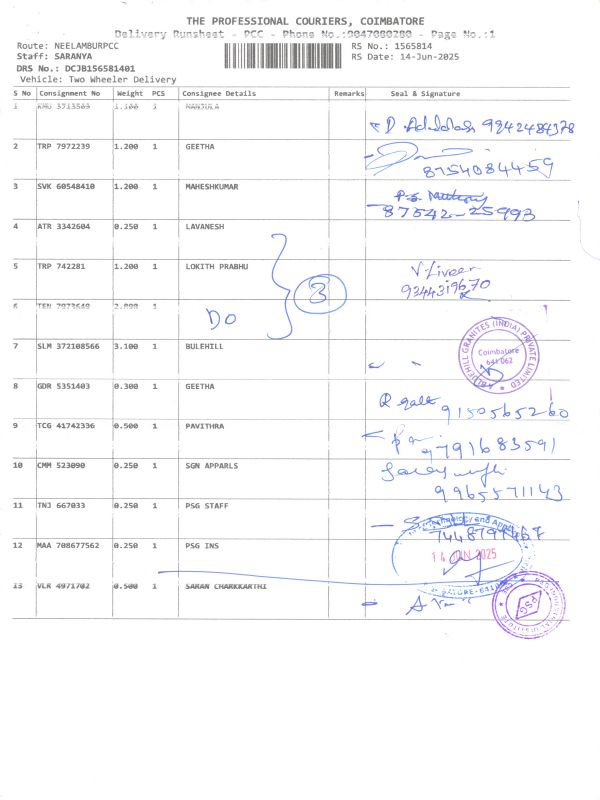 THE PROFESSIONAL COURIERS, COIMBATORE
Delivery Runsheet - PCC - Phone No.:9047080280 - Page No.:1
Route: NEELAMBURPCC
Staff: SARANYA
DRS No.: DCJB156581401
Vehicle: Two Wheeler Delivery
RS No.: 1565814
RS Date: 14-Jun-2025
S No Consignment No Weight PCS Consignee Details Remarks Seal & Signature
1 1.100 1 MANJULA
9242484378
2 TRP 7972239 1.200 1 GEETHA
8754084459
3 SVK 60548410 1.200 1 MAHESHKUMAR
87542-25993
4 ATR 3342604 0.250 1 LAVANESH
5 TRP 742281 1.200 1 LOKITH PRABHU
3
9344319670
6 TEN 7973648 2.000 1
DO
7 SLM 372108566 3.100 1 BULEHILL
BLUEHILL GRANITES (INDIA) PRIVATE LIMITED
Coimbatore
641 062
8 GDR 5351403 0.300 1 GEETHA
9150565260
9 TCG 41742336 0.500 1 PAVITHRA
9791683591
10 CMM 523090 0.250 1 SGN APPARLS
9965571143
11 TNJ 667033 0.250 1 PSG STAFF
12 MAA 708677562 0.250 1 PSG INS
14 JUN 2025
13 VLR 4971702 0.500 1 SARAN CHARKKARTHI
PSG